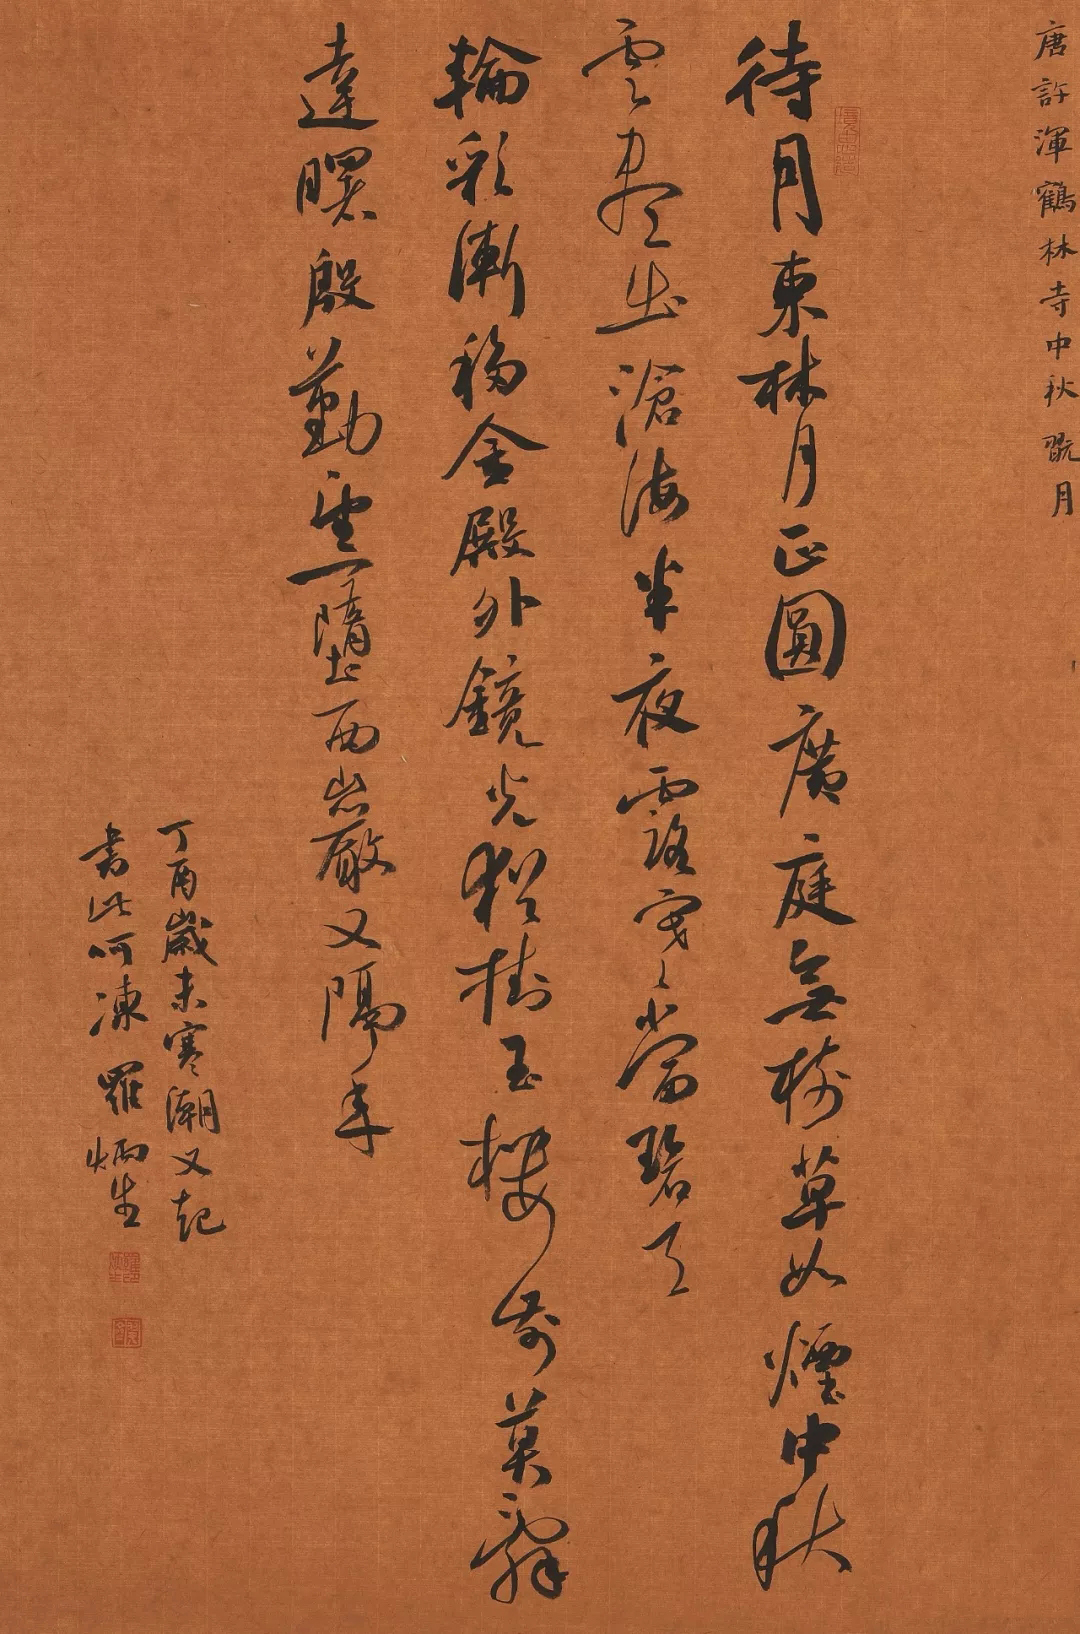 唐許渾鶴林寺中秋翫月
待月東林月正圓廣庭無樹草如煙中秋
雲盡出滄海半夜露寒當碧天
輪彩漸移金殿外鏡光猶掛玉樓前莫辭
達曙殷勤望一墮西巖又隔年
丁酉歲末寒潮又起
書此呵凍 羅炳生